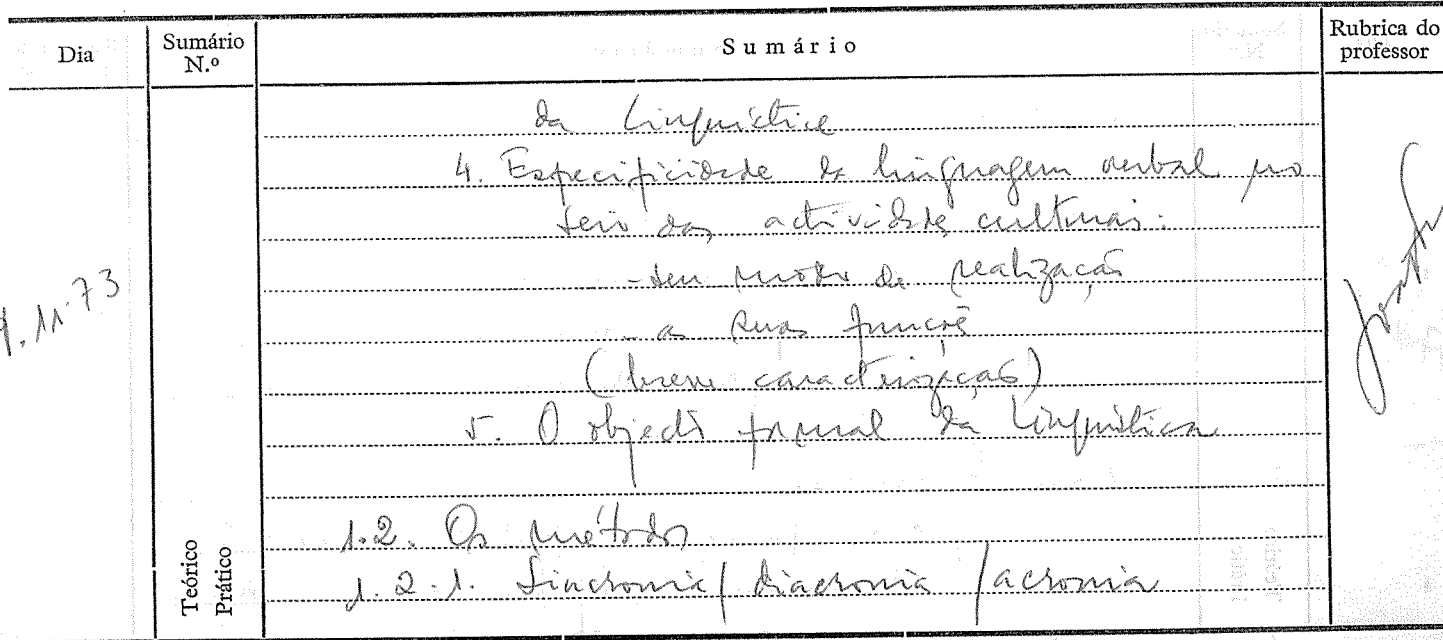 Dia
Sumário N.º
Sumário
Rubrica do professor
da Linguística
4. Especificidade da linguagem verbal no
seio das actividades culturais:
- seu modo de realização
- as suas funções
(breve caracterização)
5. O objecto formal da Linguística
1.2. Os métodos
1.2.1. Sincronia / diacronia / acronia
11.73
Teórico
Prático